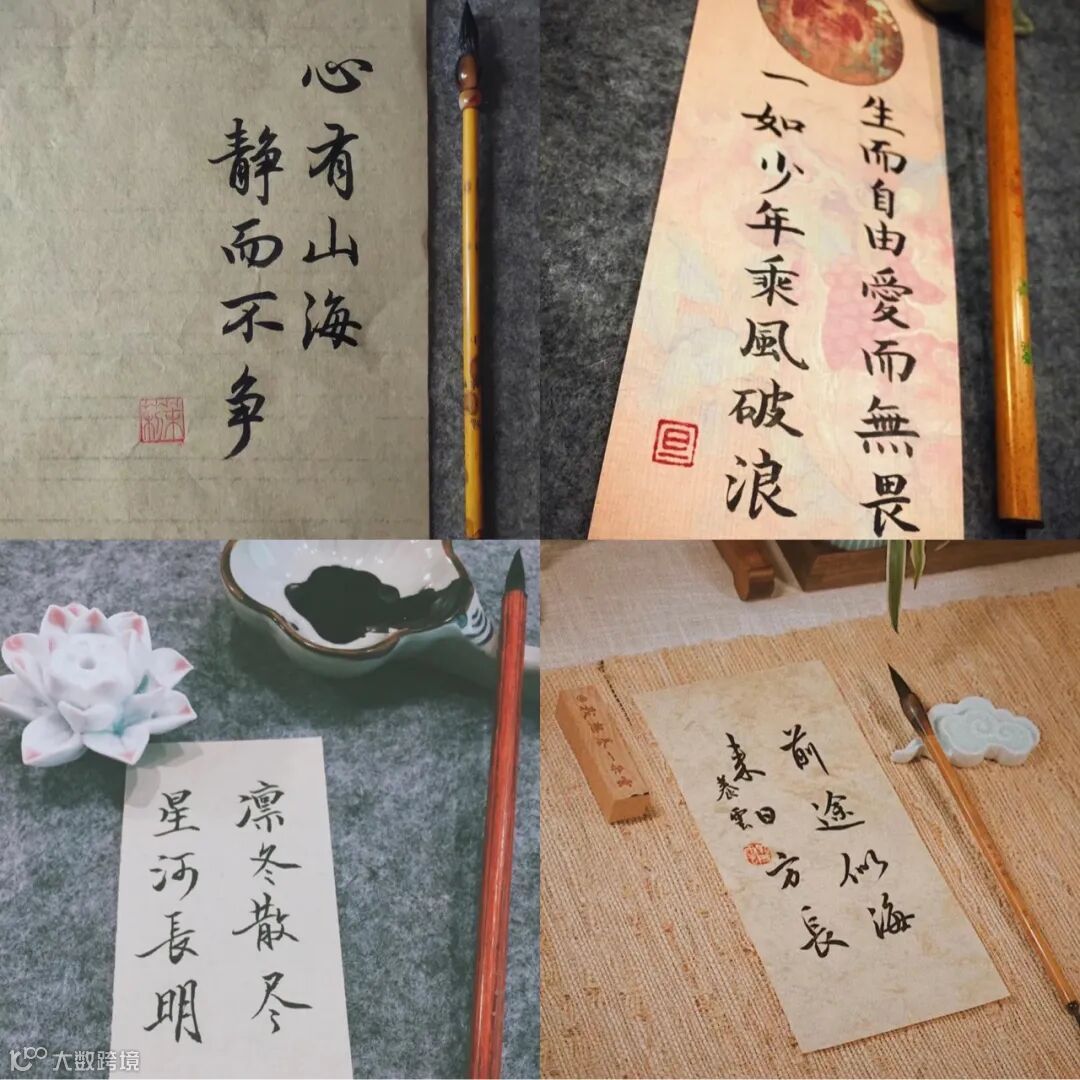 心有山海
静而不争
生而自由愛而無畏
一如少年乘風破浪
凛冬散尽
星河長明
前途似海
来日方長
大数跨境